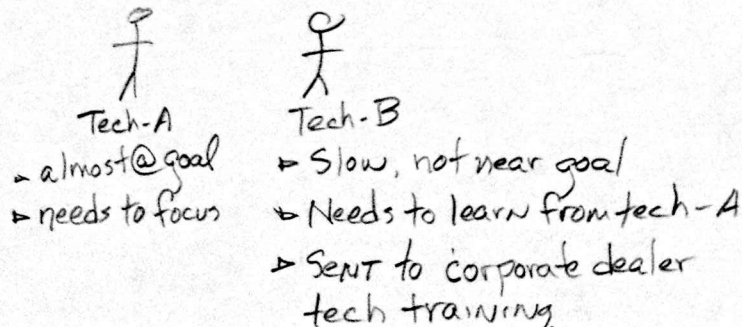 Tech-A
▹ almost@goal
▹ needs to focus
Tech-B
▹ Slow, not near goal
▹ Needs to learn from tech-A
▹ SENT to corporate dealer
tech training